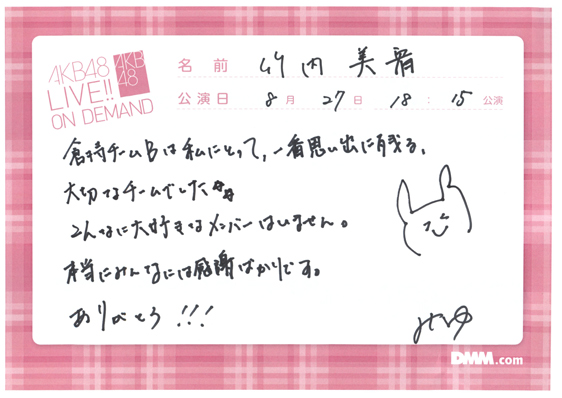 AKB48
LIVE!!
ON DEMAND
AKB
48
名前 竹内美宥
公演日 8月27日 18:15公演
倉持チームBは私にとって、一番思い出に残る、
大切なチームでした
こんなに大好きなメンバーはいません。
本当にみんなには感謝ばかりです。
ありがとう!!!
みゆ
DMM.com